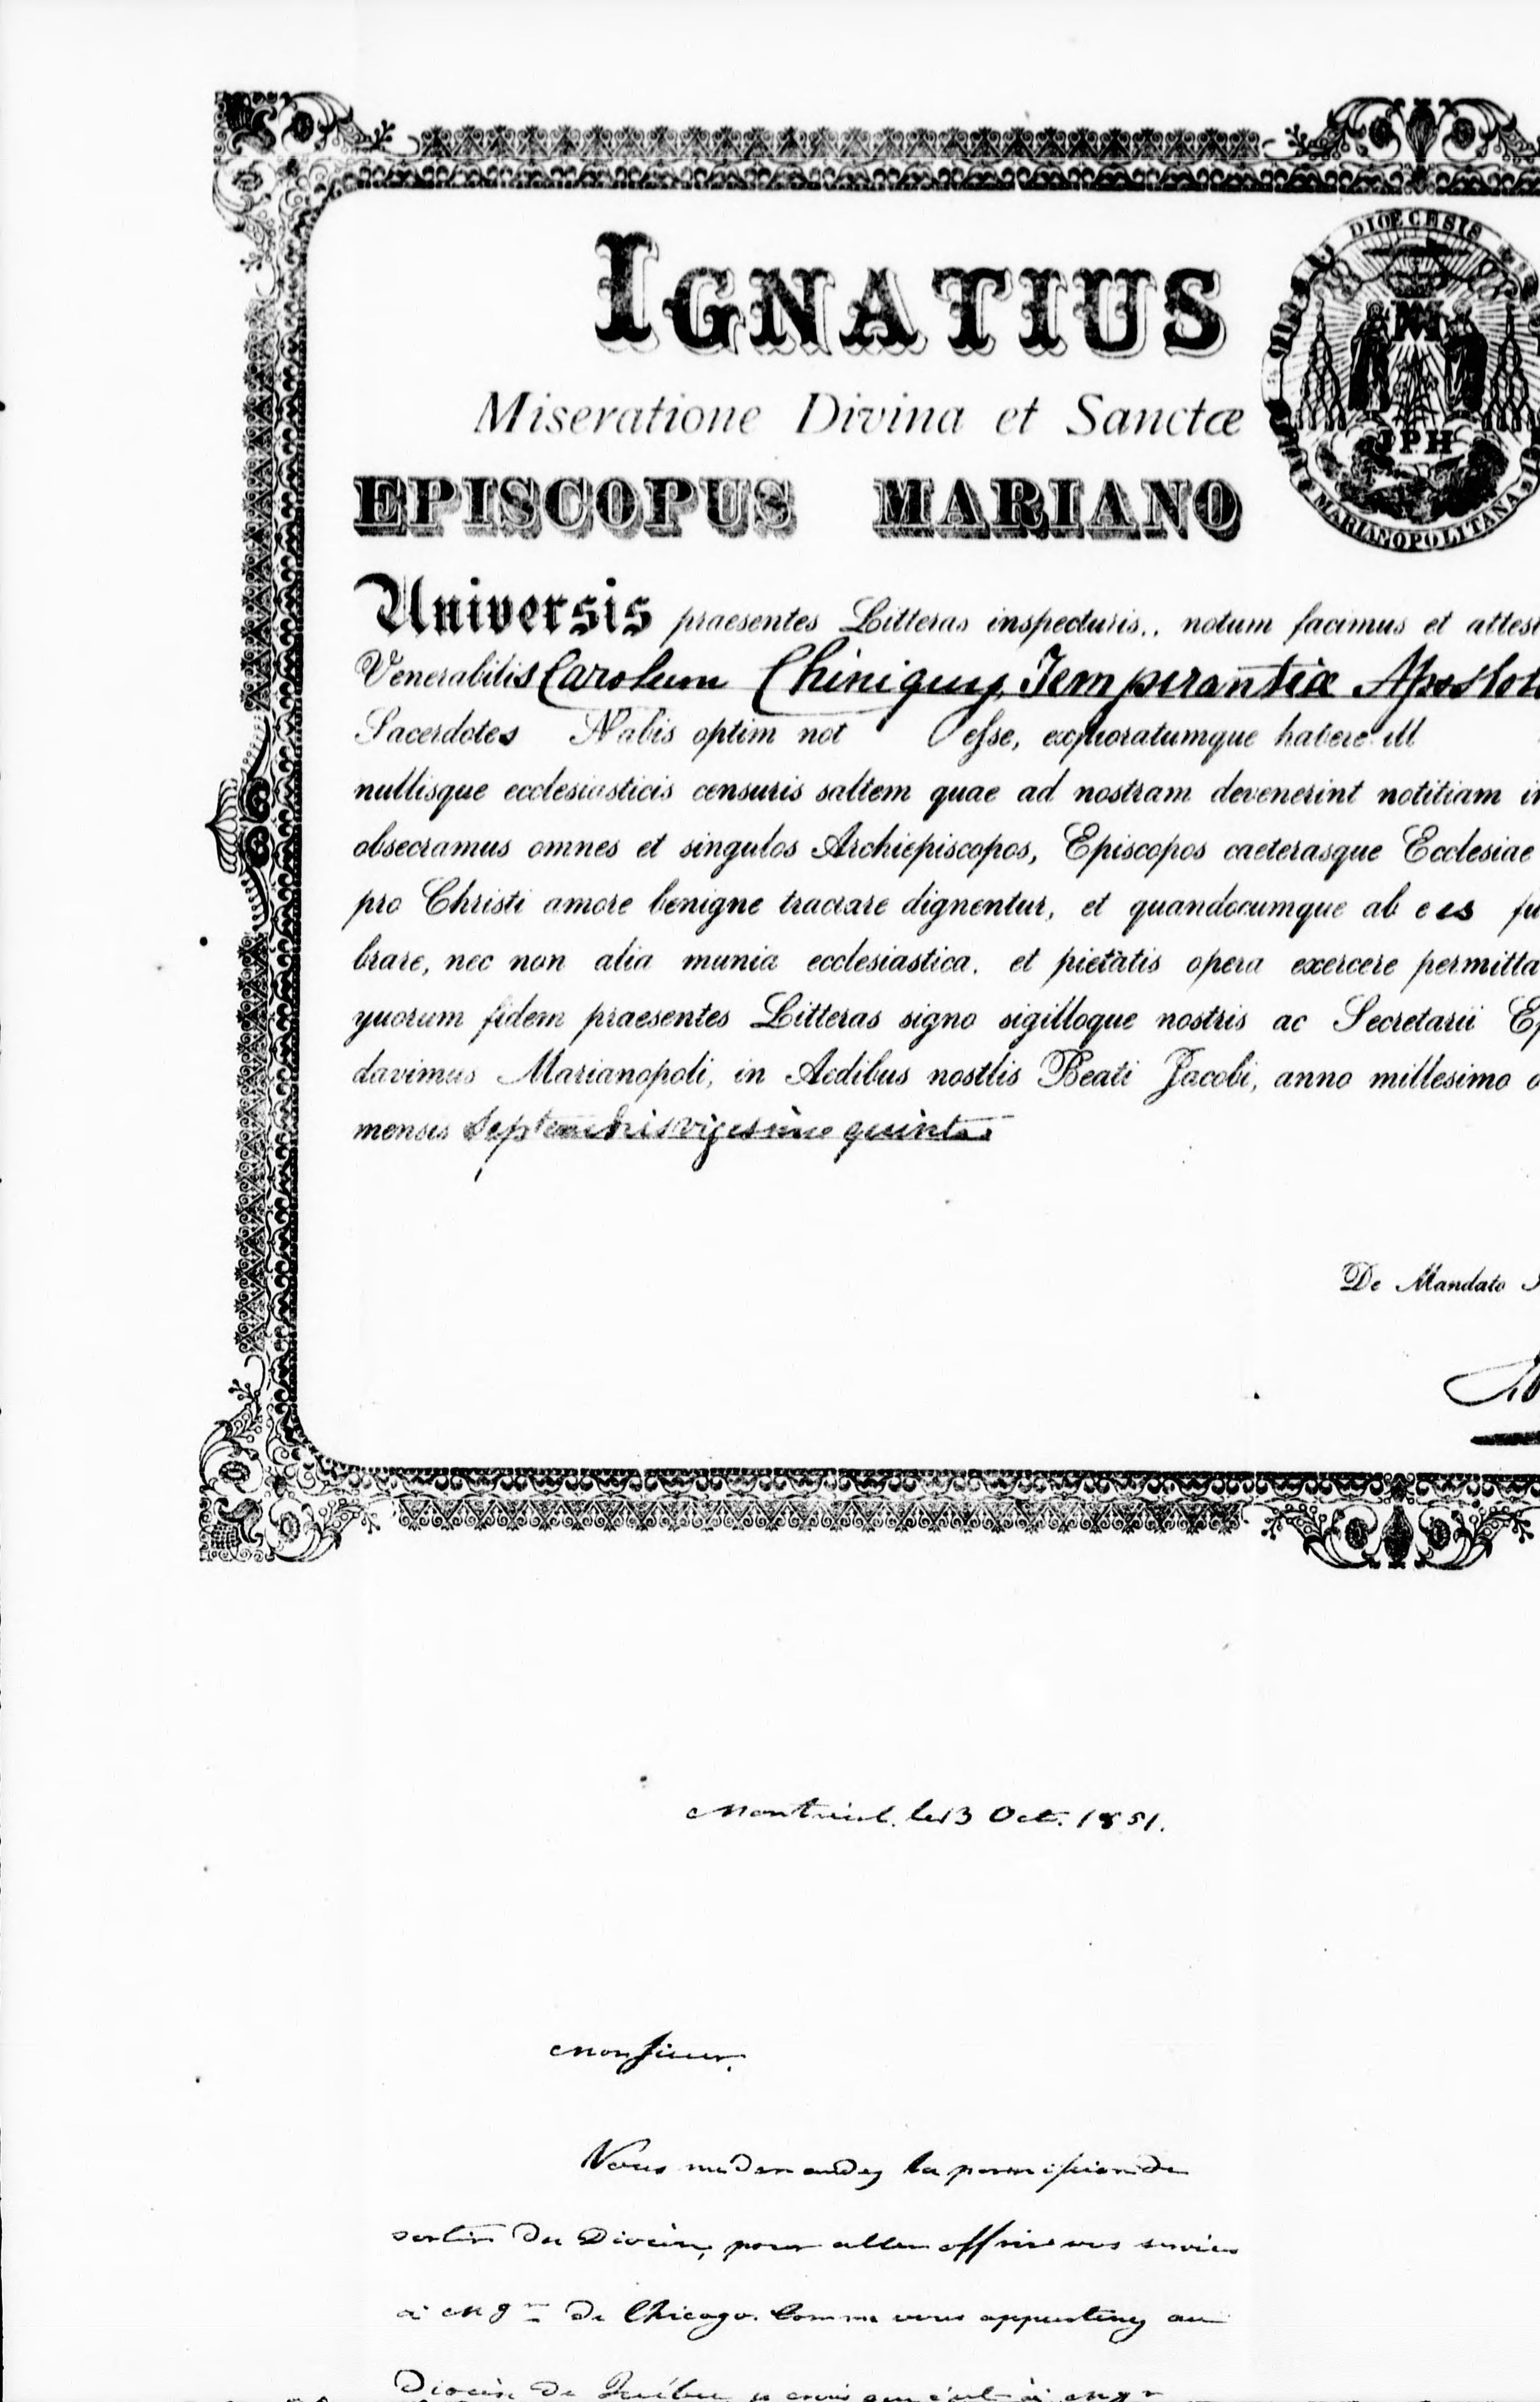 IGNATIUS
DIOECESIS
M
JPH
MARIANOPOLITANA
Miseratione Divina et Sanctæ
EPISCOPUS MARIANO
Universis praesentes Litteras inspecturis,. notum facimus et attest
Venerabilis Carolum Chiniquy Temperantiæ Apostolu
Sacerdotes Nabis optim not esse, exploratumque habere ill
nullisque ecclesiasticis censuris saltem quae ad nostram devenerint notitiam in
obsecramus omnes et singulos Archiepiscopos, Episcopos caeterasque Ecclesiae
pro Christi amore benigne tractare dignentur, et quandocumque ab e es fu
brare, nec non alia munia ecclesiastica. et pietatis opera exercere permitta
quorum fidem praesentes Litteras signo sigilloque nostris ac Secretarii Ep
davimus Marianopoli, in Aedibus nostlis Beati Jacobi, anno millesimo o
mensis Septembris vigesimo quinto
De Mandato
Montréal, le 13 Oct. 1851.
Monsieur,
Vous me demandez la permission de
sortir du Diocèse, pour aller offrir vos services
à Mgr de Chicago. Comme vous appartenez au
Diocèse de Québec je crois que c'est à Mgr